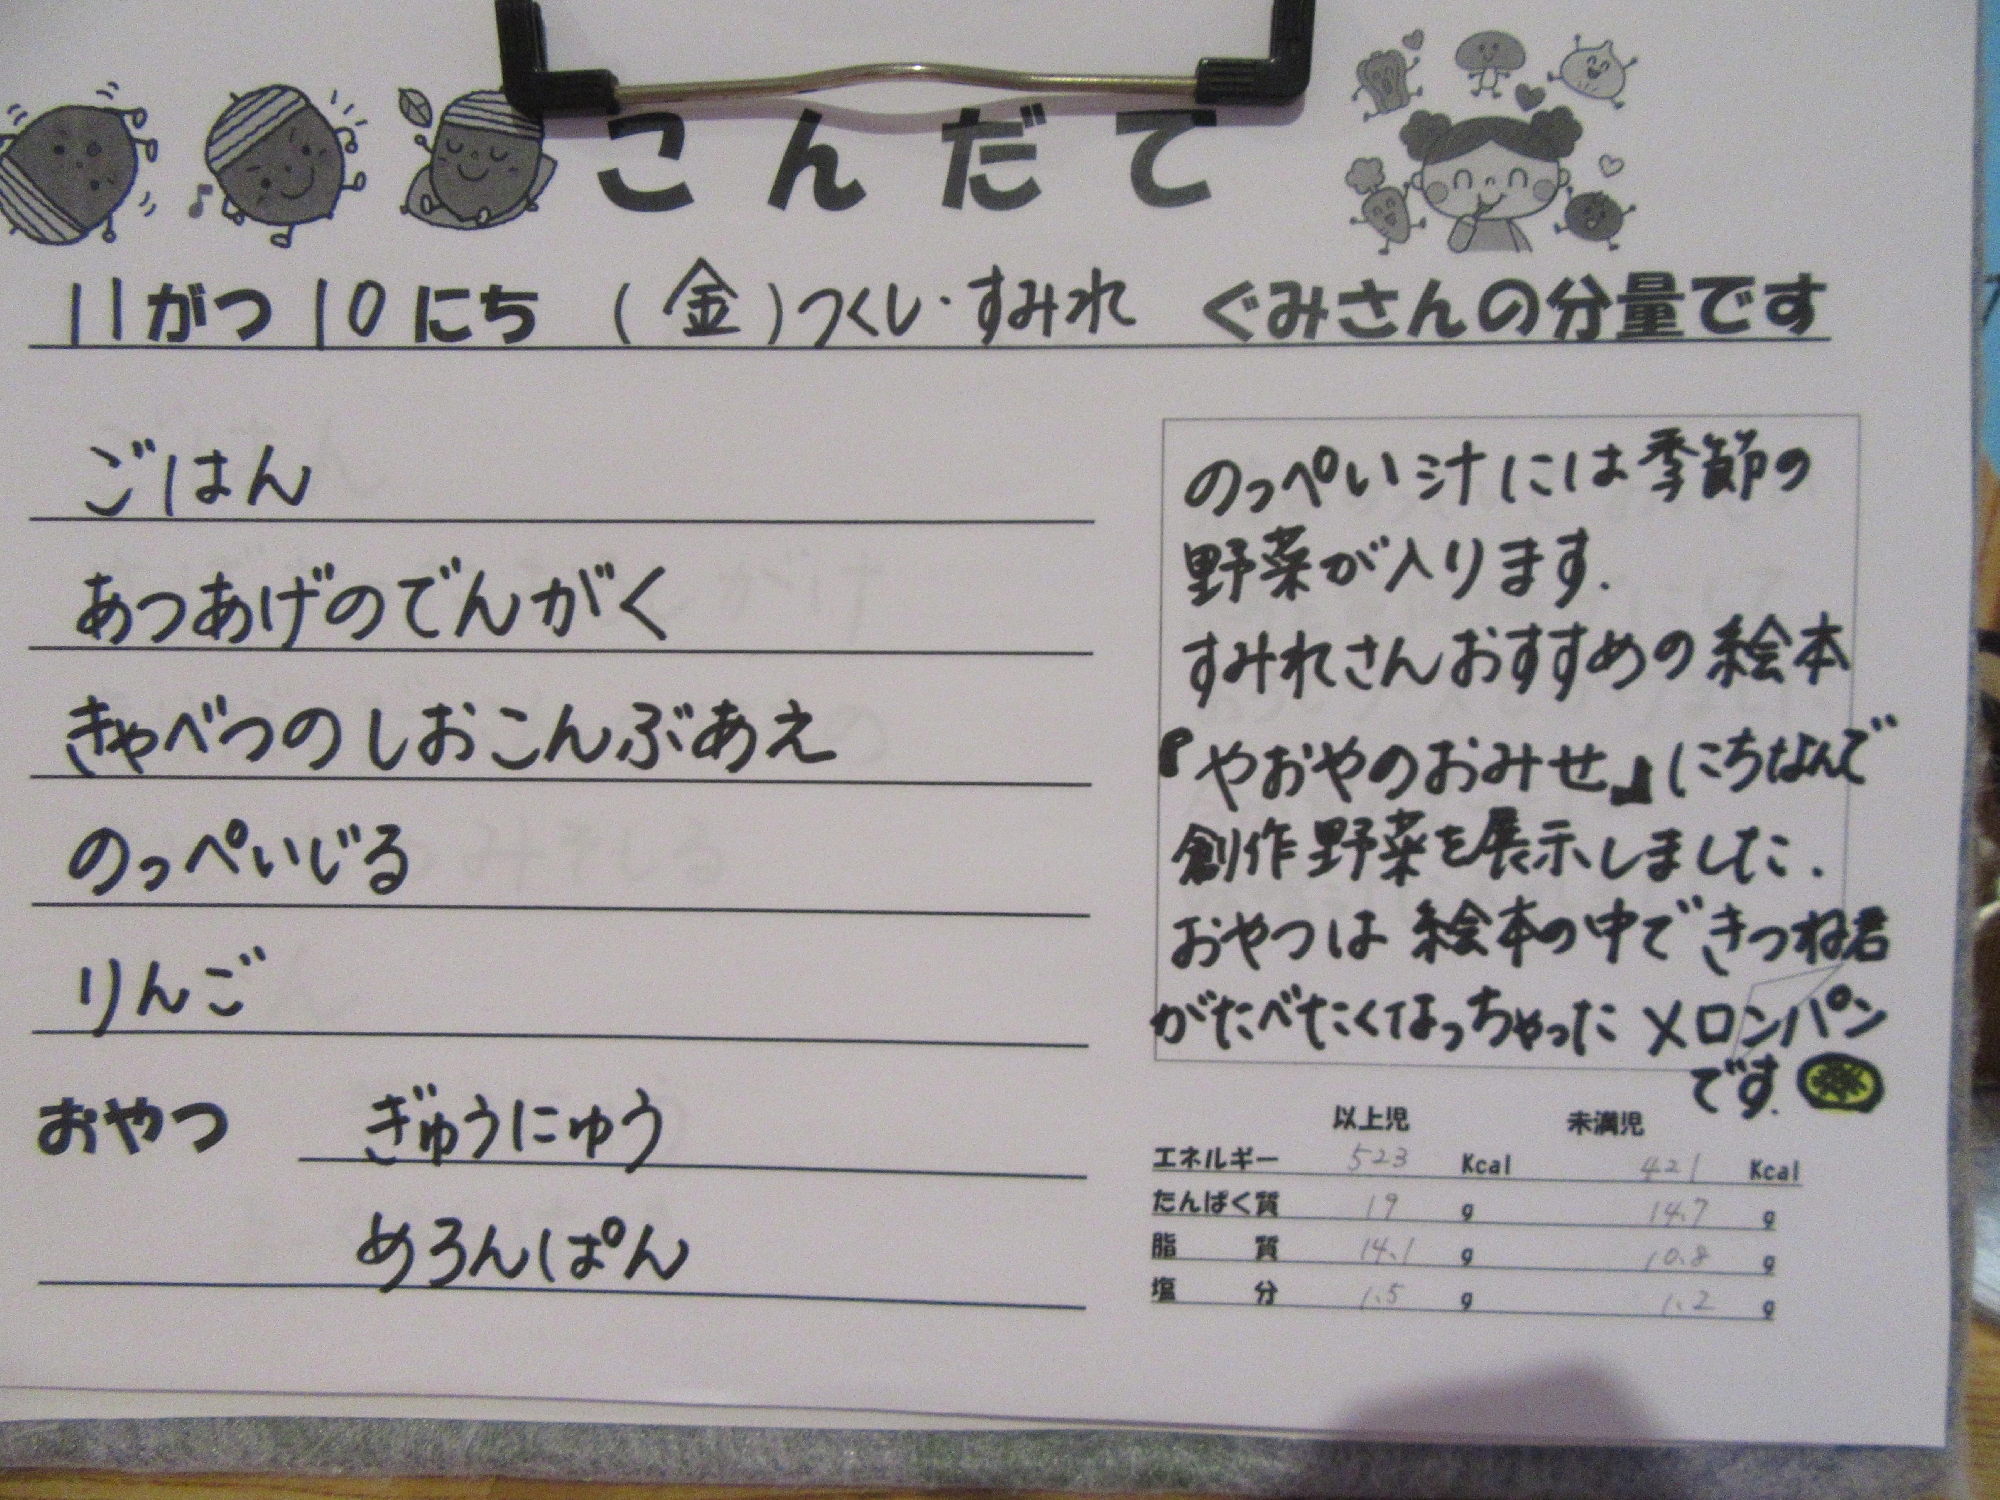 こんだて
11がつ10にち (金)つくし・すみれ ぐみさんの分量です
ごはん
あつあげのでんがく
きゃべつのしおこんぶあえ
のっぺいじる
りんご
おやつ ぎゅうにゅう
めろんぱん
のっぺい汁には季節の
野菜が入ります.
すみれさんおすすめの絵本
『やおやのおみせ』にちなんで
創作野菜を展示しました.
おやつは絵本の中できつね君
がたべたくなっちゃったメロンパン
です.
以上児 未満児
エネルギー 523 Kcal 421 Kcal
たんぱく質 19 g 14.7 g
脂質 14.1 g 10.8 g
塩分 1.5 g 1.2 g